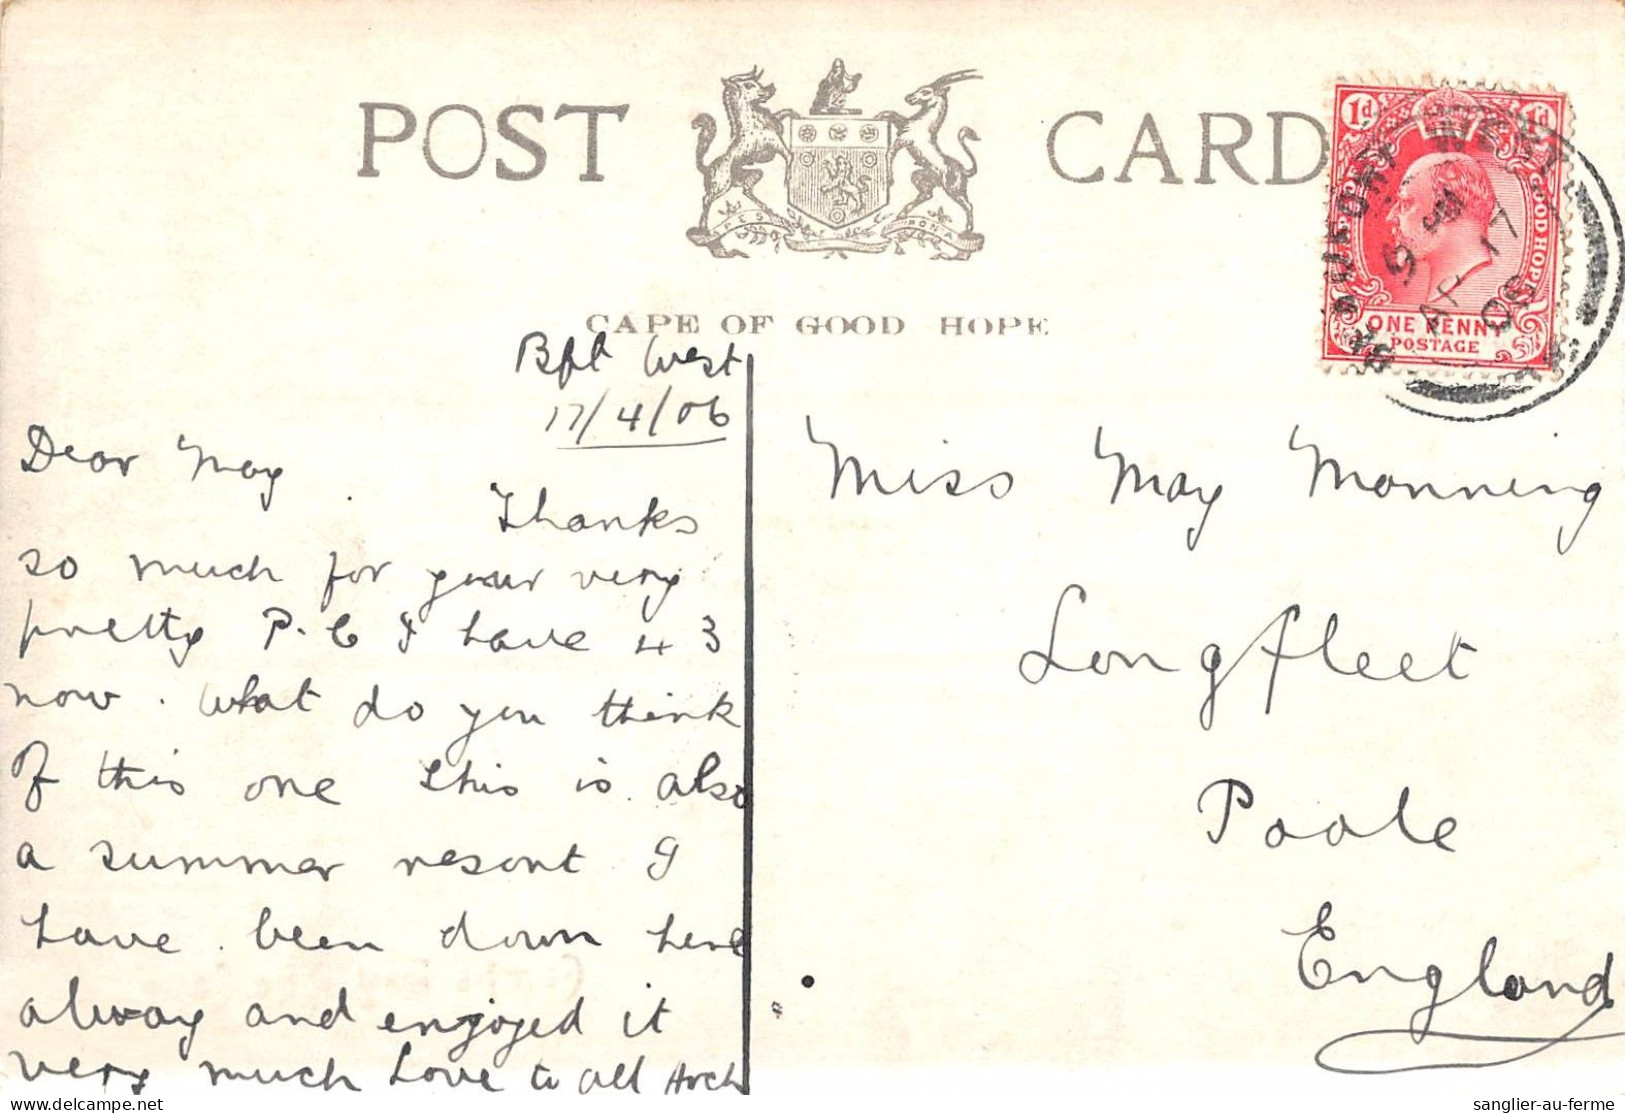 POST CARD
CAPE OF GOOD HOPE
1d 1d
GOOD HOPE
ONE PENNY
POSTAGE
BEAUFORT WEST
AP 17
06
Bft West
17/4/06
Dear May
Thanks
so much for your very
pretty P.C I have 43
now. What do you think
of this one this is also
a summer resort I
have been down here
alway and enjoyed it
very much Love to all Arch
Miss May Manning
Longfleet
Poole
England
sanglier-au-ferme